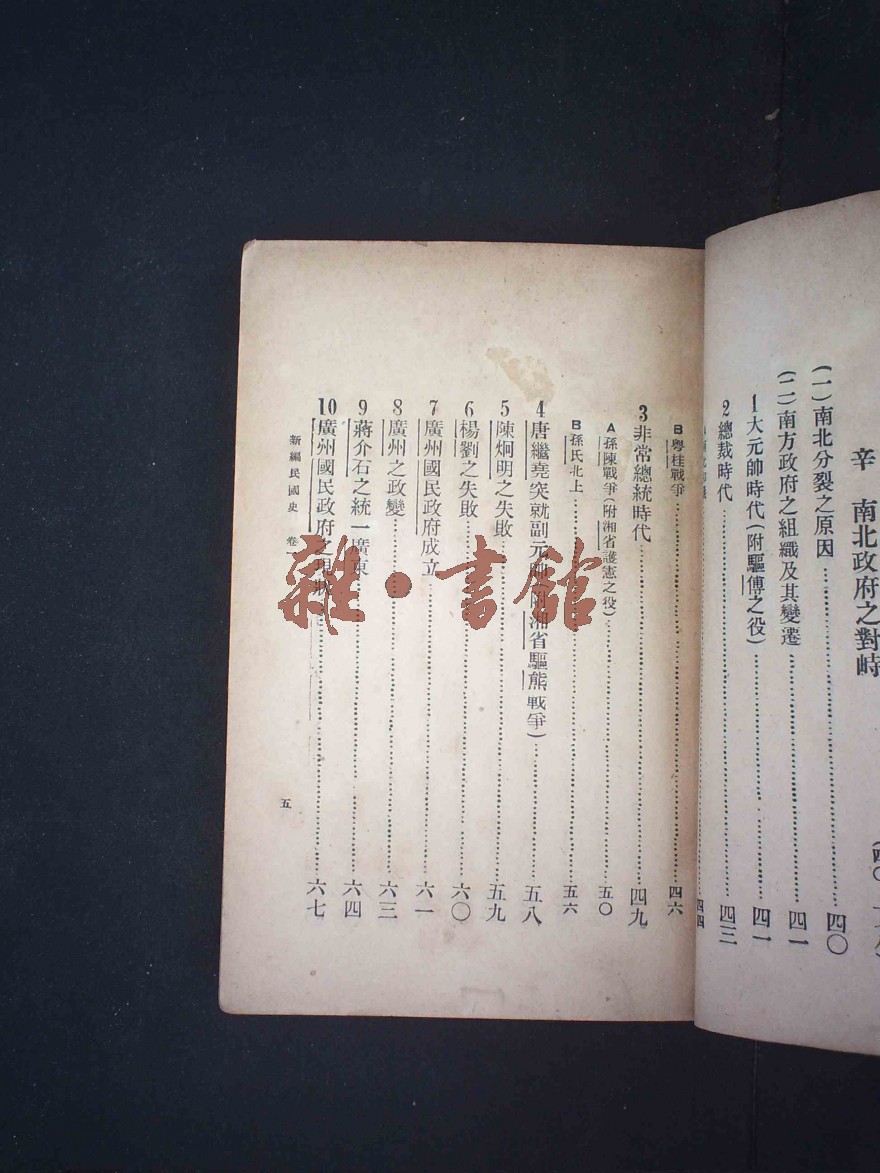 辛 南北政府之對峙
(一)南北分裂之原因……四〇
(二)南方政府之組織及其變遷……四一
1大元帥時代(附驅傅之役)……四一
2總裁時代……四三
四四
B粵桂戰爭……四六
3非常總統時代……四九
A孫陳戰爭(附湘省護憲之役)……五〇
B孫氏北上……五六
4唐繼堯突就副元帥(附湘省驅熊戰爭)……五八
5陳炯明之失敗……五九
6楊劉之失敗……六〇
7廣州國民政府成立……六一
8廣州之政變……六三
9蔣介石之統一廣東……六四
10廣州國民政府之現狀……六七
新編民國史 卷一
五
雜·書館